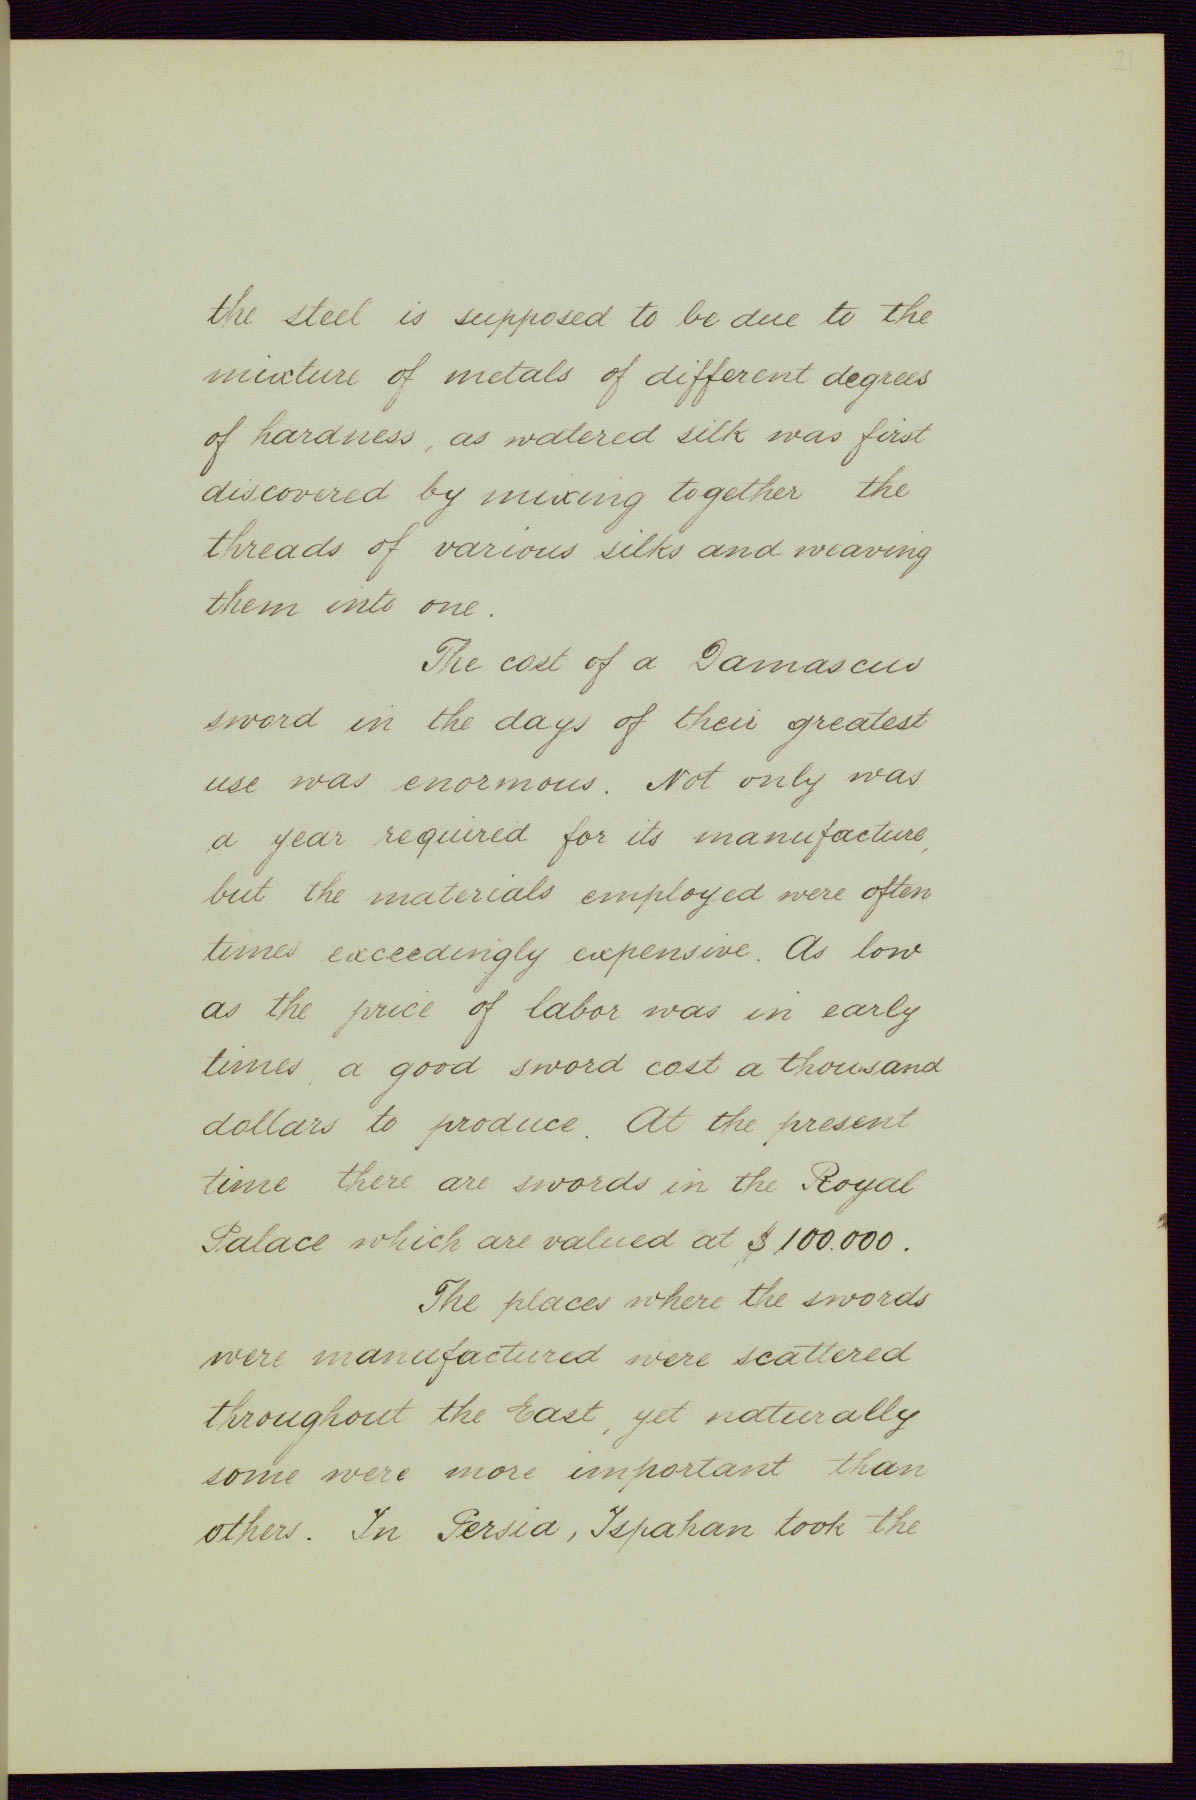 21
the steel is supposed to be due to the
mixture of metals of different degrees
of hardness, as watered silk was first
discovered by mixing together the
threads of various silks and weaving
them into one.
The cost of a Damascus
sword in the days of their greatest
use was enormous. Not only was
a year required for its manufacture,
but the materials employed were often
times exceedingly expensive. As low
as the price of labor was in early
times, a good sword cost a thousand
dollars to produce. At the present
time there are swords in the Royal
Palace which are valued at $100.000.
The places where the swords
were manufactured were scattered
throughout the East, yet naturally
some were more important than
others. In Persia, Ispahan took the